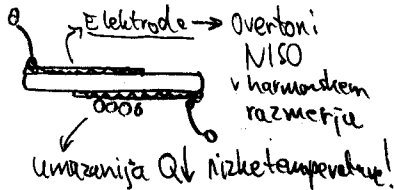 Elektrode → Overtoni
NISO
v harmonskem
razmerju
umazanija Q↓ nizke temperature!